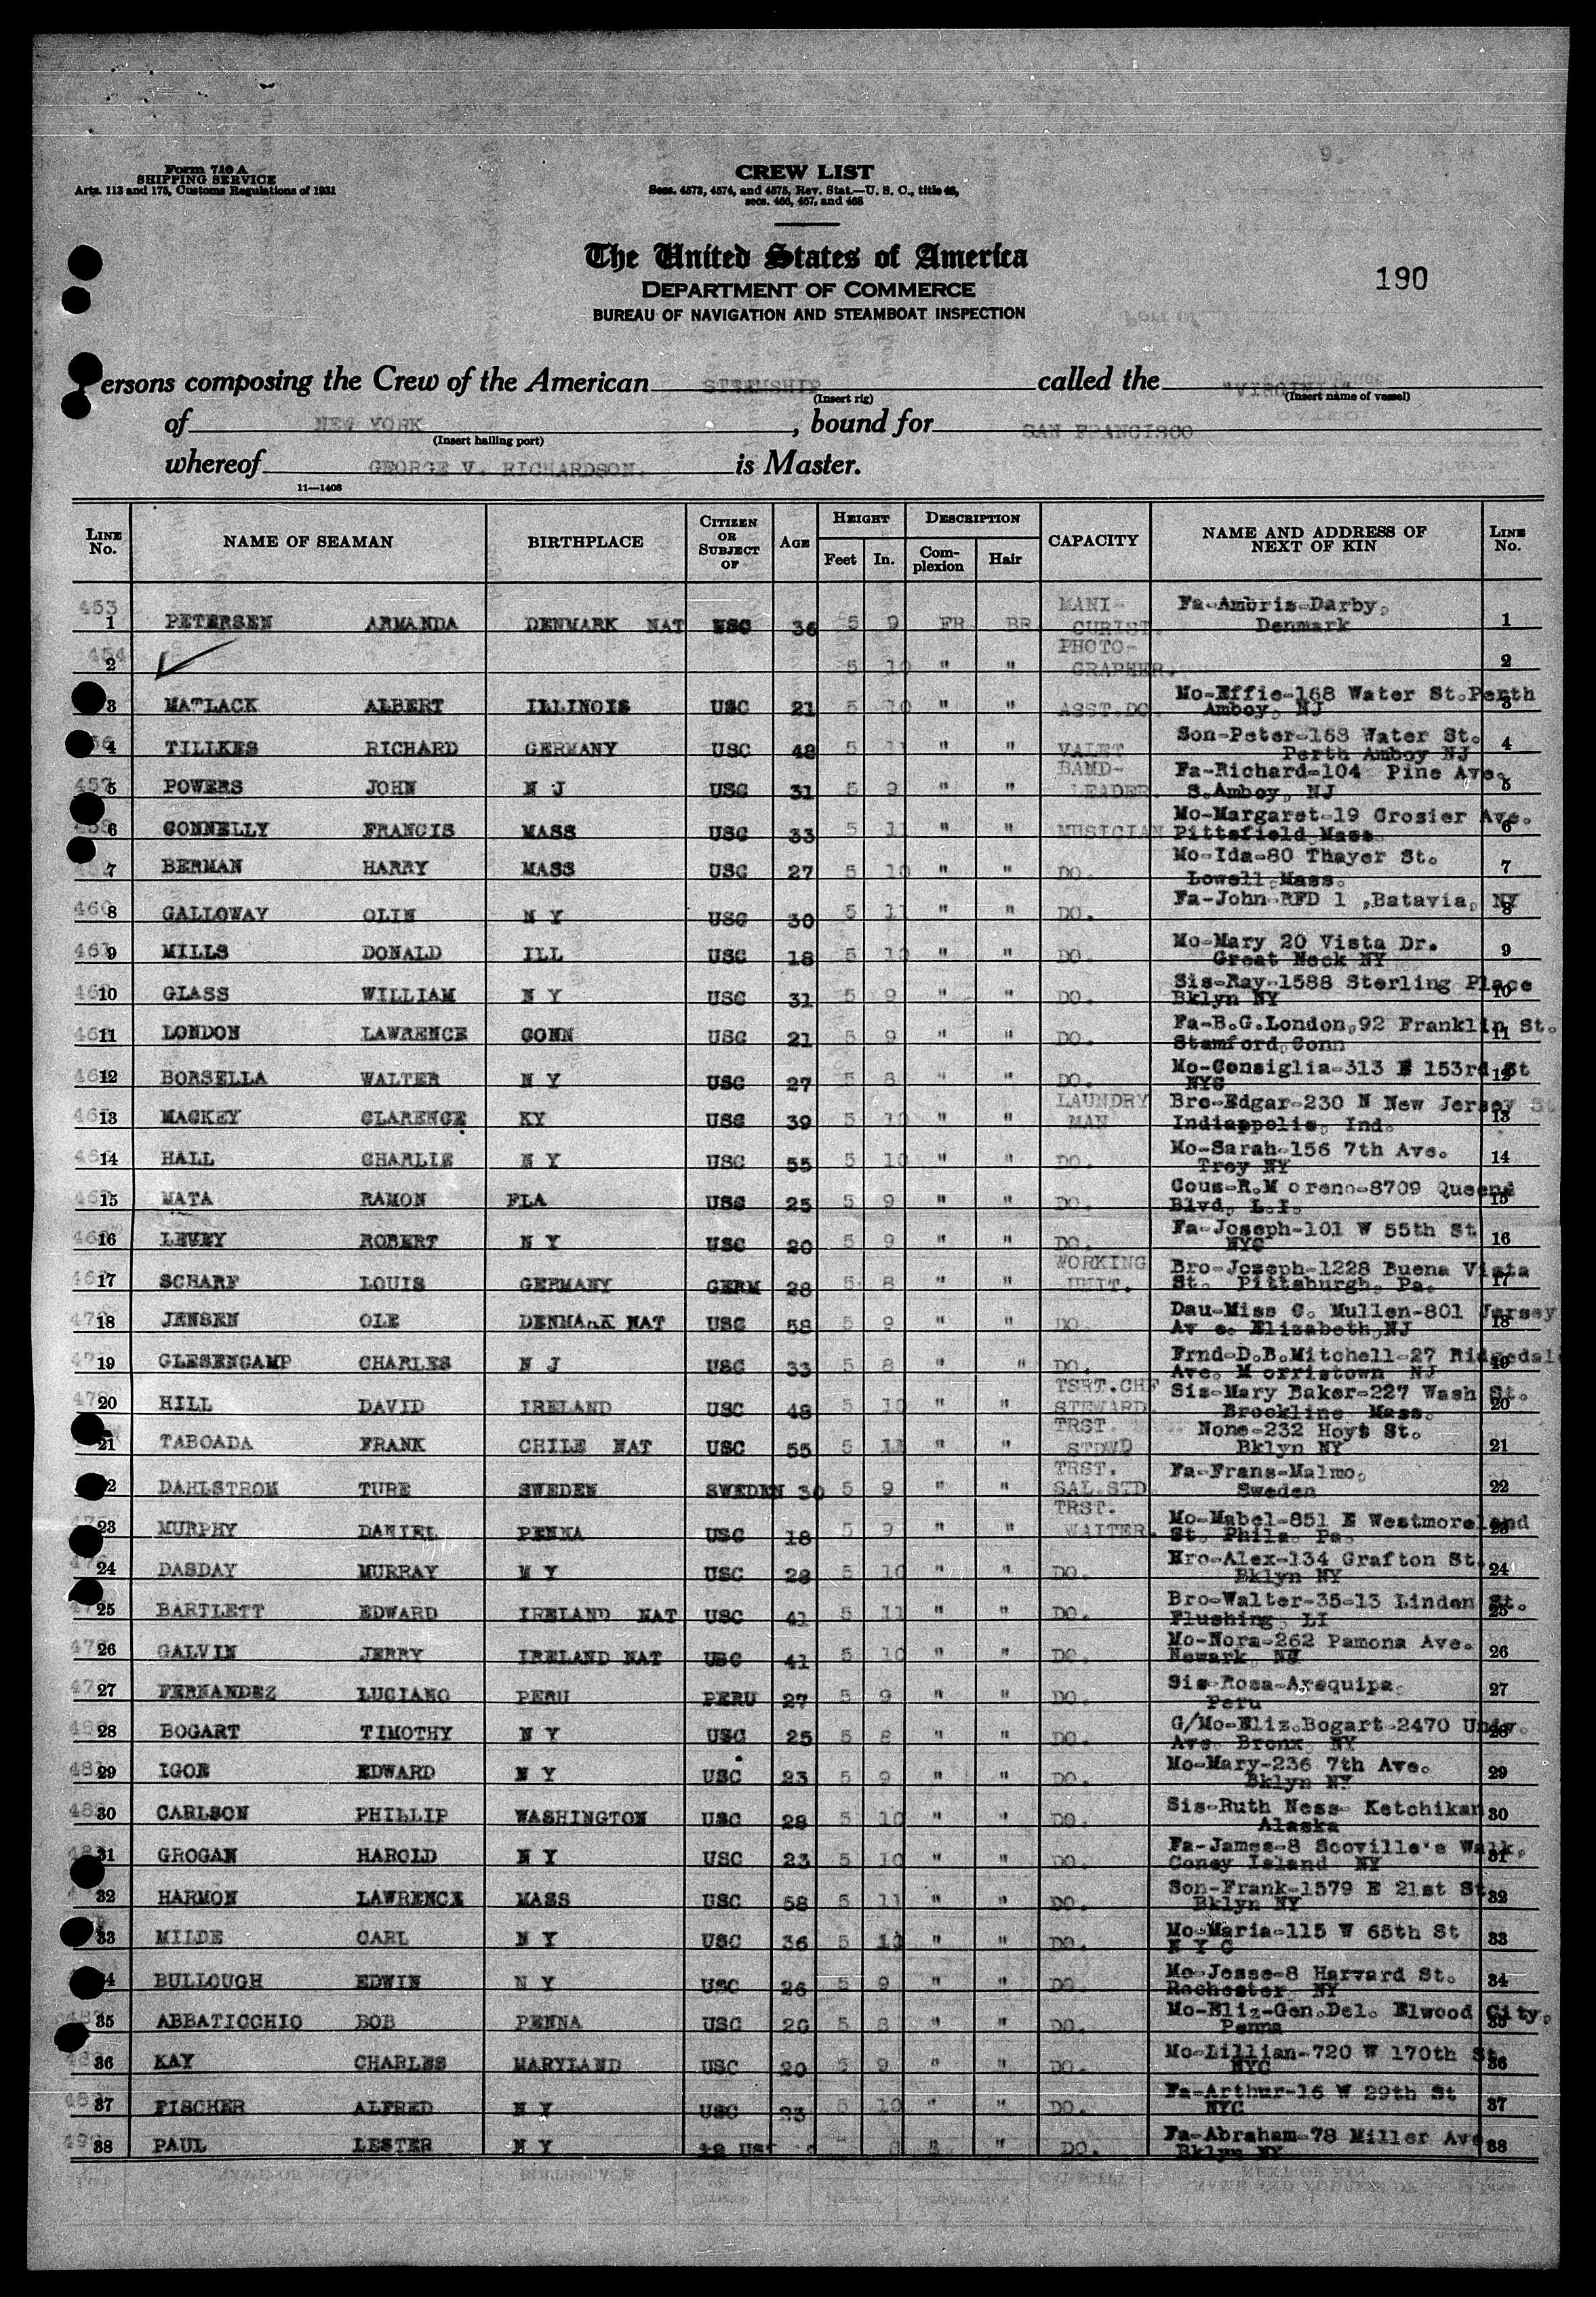 9.
Form 710 A
SHIPPING SERVICE
Arts. 113 and 175, Customs Regulations of 1931
CREW LIST
Secs. 4573, 4574, and 4575, Rev. Stat.—U. S. C., title 46,
secs. 466, 467, and 468
The United States of America
DEPARTMENT OF COMMERCE
BUREAU OF NAVIGATION AND STEAMBOAT INSPECTION
190
Persons composing the Crew of the American STEAMSHIP called the "VIRGINIA"
(Insert rig) (Insert name of vessel)
of NEW YORK, bound for SAN FRANCISCO
(Insert hailing port)
whereof GEORGE V. RICHARDSON. is Master.
11—1408
LINE No. NAME OF SEAMAN BIRTHPLACE CITIZEN OR SUBJECT OF AGE HEIGHT Feet In. DESCRIPTION Complexion Hair CAPACITY NAME AND ADDRESS OF NEXT OF KIN LINE No.
453 1 PETERSEN ARMANDA DENMARK NAT USC 36 5 9 FR BR MANI-CURIST. Fa-Ambris-Darby, Denmark 1
454 2 5 10 " " PHOTO-GRAPHER. 2
3 MATLACK ALBERT ILLINOIS USC 21 5 10 " " ASST.DO. Mo-Effie-168 Water St.Perth Amboy, NJ 3
4 TILLKES RICHARD GERMANY USC 48 5 11 " " VALET Son-Peter-168 Water St. Perth Amboy NJ 4
457 5 POWERS JOHN N J USC 31 5 9 " " BAND-LEADER. Fa-Richard-104 Pine Ave. S.Amboy, NJ 5
6 CONNELLY FRANCIS MASS USC 33 5 11 " " MUSICIAN Mo-Margaret-19 Crosier Ave. Pittsfield Mass 6
7 BERMAN HARRY MASS USC 27 5 10 " " DO. Mo-Ida-80 Thayer St. Lowell,Mass. 7
460 8 GALLOWAY OLIN N Y USC 30 5 11 " " DO. Fa-John-RFD 1 ,Batavia, NY 8
461 9 MILLS DONALD ILL USC 18 5 10 " " DO. Mo-Mary 20 Vista Dr. Great Neck NY 9
10 GLASS WILLIAM N Y USC 31 5 9 " " DO. Sis-Ray-1588 Sterling Place Bklyn NY 10
11 LONDON LAWRENCE CONN USC 21 5 9 " " DO. Fa-B.G.London,92 Franklin St. Stamford,Conn 11
12 BORSELLA WALTER N Y USC 27 5 8 " " DO. Mo-Consiglia-313 E 153rd St NYC 12
13 MACKEY CLARENCE KY USC 39 5 10 " " LAUNDRY MAN Bro-Edgar-230 N New Jersey St Indiappolis, Ind. 13
14 HALL CHARLIE N Y USC 55 5 10 " " DO. Mo-Sarah-156 7th Ave. Troy NY 14
15 MATA RAMON FLA USC 25 5 9 " " DO. Cous-R.M oreno-8709 Queens Blvd, L.I. 15
16 LEVEY ROBERT N Y USC 20 5 9 " " DO. Fa-Joseph-101 W 55th St NYC 16
17 SCHARF LOUIS GERMANY GERM 28 5 8 " " WORKING UTIT. Bro-Joseph-1228 Buena Vista St. Pittsburgh, Pa. 17
18 JENSEN OLE DENMARK NAT USC 58 5 9 " " DO. Dau-Miss C. Mullen-801 Jersey Av e. Elizabeth,NJ 18
19 GLESENCAMP CHARLES N J USC 33 5 8 " " DO. Frnd-D.B.Mitchell-27 Ridgedale Ave. M orristown NJ 19
20 HILL DAVID IRELAND USC 48 5 10 " " TSRT.CHF STEWARD. Sis-Mary Baker-227 Wash St. Brookline Mass. 20
21 TABOADA FRANK CHILE NAT USC 55 5 11 " " TRST. STDWD None-232 Hoyt St. Bklyn NY 21
22 DAHLSTROM TURE SWEDEN SWEDEN 30 5 9 " " TRST. SAL.STD Fa-Frans-Malmo, Sweden 22
23 MURPHY DANIEL PENNA USC 18 5 9 " " TRST. WAITER. Mo-Mabel-851 E Westmoreland St. Phila. Pa. 23
24 DASDAY MURRAY N Y USC 28 5 10 " " DO. Hro-Alex-134 Grafton St. Bklyn NY 24
25 BARTLETT EDWARD IRELAND NAT USC 41 5 11 " " DO. Bro-Walter-35-13 Linden St. Flushing, LI 25
26 GALVIN JERRY IRELAND NAT USC 41 5 10 " " DO. Mo-Nora-262 Pamona Ave. Newark, NJ 26
27 FERNANDEZ LUCIANO PERU PERU 27 5 9 " " DO. Sis-Rosa-Arequipa, Peru 27
28 BOGART TIMOTHY N Y USC 25 5 8 " " DO. G/Mo-Eliz.Bogart-2470 Univ. Ave. Bronx, NY 28
29 IGOE EDWARD N Y USC 23 5 9 " " DO. Mo-Mary-236 7th Ave. Bklyn NY 29
30 CARLSON PHILLIP WASHINGTON USC 28 5 10 " " DO. Sis-Ruth Ness- Ketchikan Alaska 30
31 GROGAN HAROLD N Y USC 23 5 10 " " DO. Fa-James-8 Scoville's Walk, Coney Island NY 31
32 HARMON LAWRENCE MASS USC 58 5 11 " " DO. Son-Frank-1579 E 21st St Bklyn NY 32
33 MILDE CARL N Y USC 36 5 10 " " DO. Mo-Maria-115 W 65th St N Y C 33
34 BULLOUGH EDWIN N Y USC 26 5 9 " " DO Mo-Jesse-8 Harvard St. Rochester, NY 34
35 ABBATICCHIO BOB PENNA USC 26 5 8 " " DO. Mo-Eliz-Gen.Del. Elwood City, Penna 35
36 KAY CHARLES MARYLAND USC 20 5 9 " " DO. Mo-Lillian-720 W 170th St. NYC 36
37 FISCHER ALFRED N Y USC 23 5 10 " " DO. Fa-Arthur-16 W 29th St NYC 37
38 PAUL LESTER N Y 8 " " DO. Fa-Abraham-78 Miller Ave Bklyn NY 38